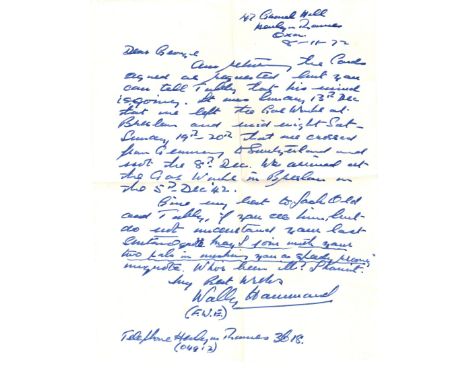 Gravel Hill
Henley on Thames
Oxon.
8-11-72
Dear George
Am returning the Cards
signed as requested but you
can tell Tubby that his mind
is going. It was Sunday 13th Dec
that we left the Gas Works at
Breslau and mid night Sat-
Sunday 19th-20th that we crossed
from Germany to Switzerland and
not the 8th Dec. We arrived at
the Gas Works in Breslau on
the 5th Dec '42.
Give my best to Jack Old
and Tubby, if you see him, but
do not understand your last
sentence quote Hey I join with your
two pals in wishing you a speedy recovery
unquote. Whos been ill? I havent.
My Best Wishes
Wally Hammond
Telephone Henley on Thames 3618.
(04912)